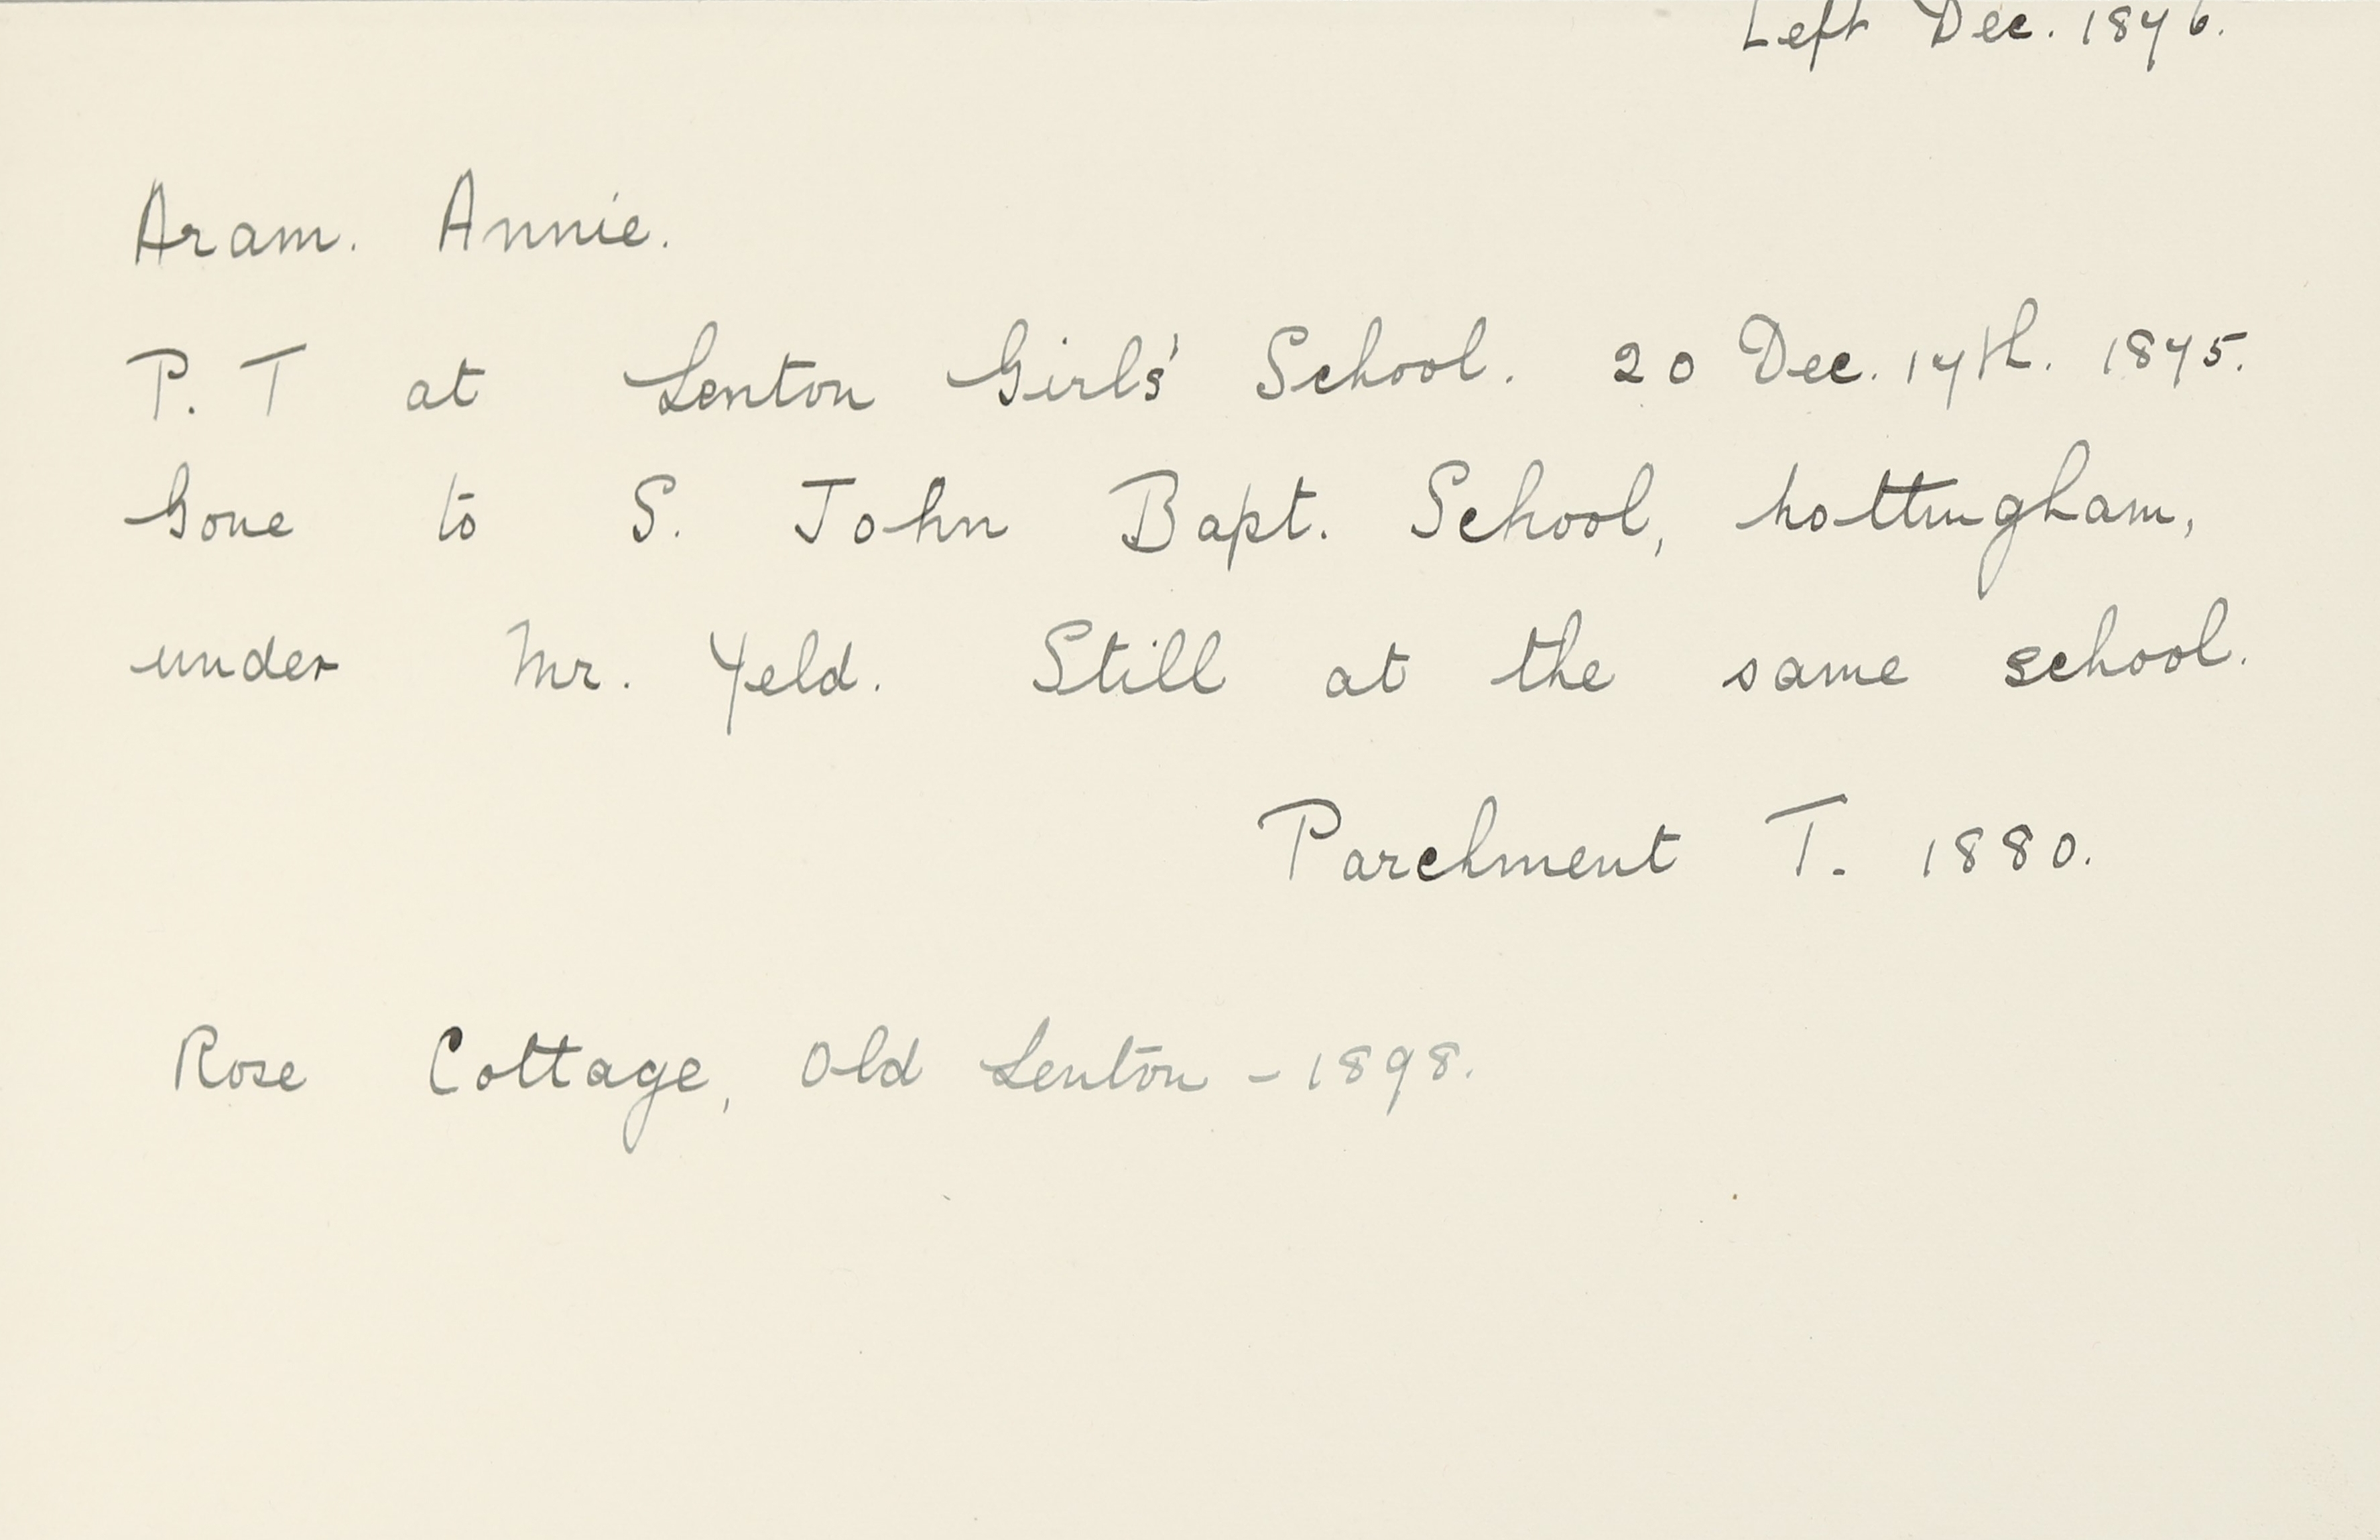 Left Dec. 1876.
Aram. Annie.
P. T at Lenton Girls' School. 20 Dec. 17th. 1875.
Gone to S. John Bapt. School, Nottingham,
under Mr. Yeld. Still at the same school.
Parchment T. 1880.
Rose Cottage, Old Lenton - 1898.